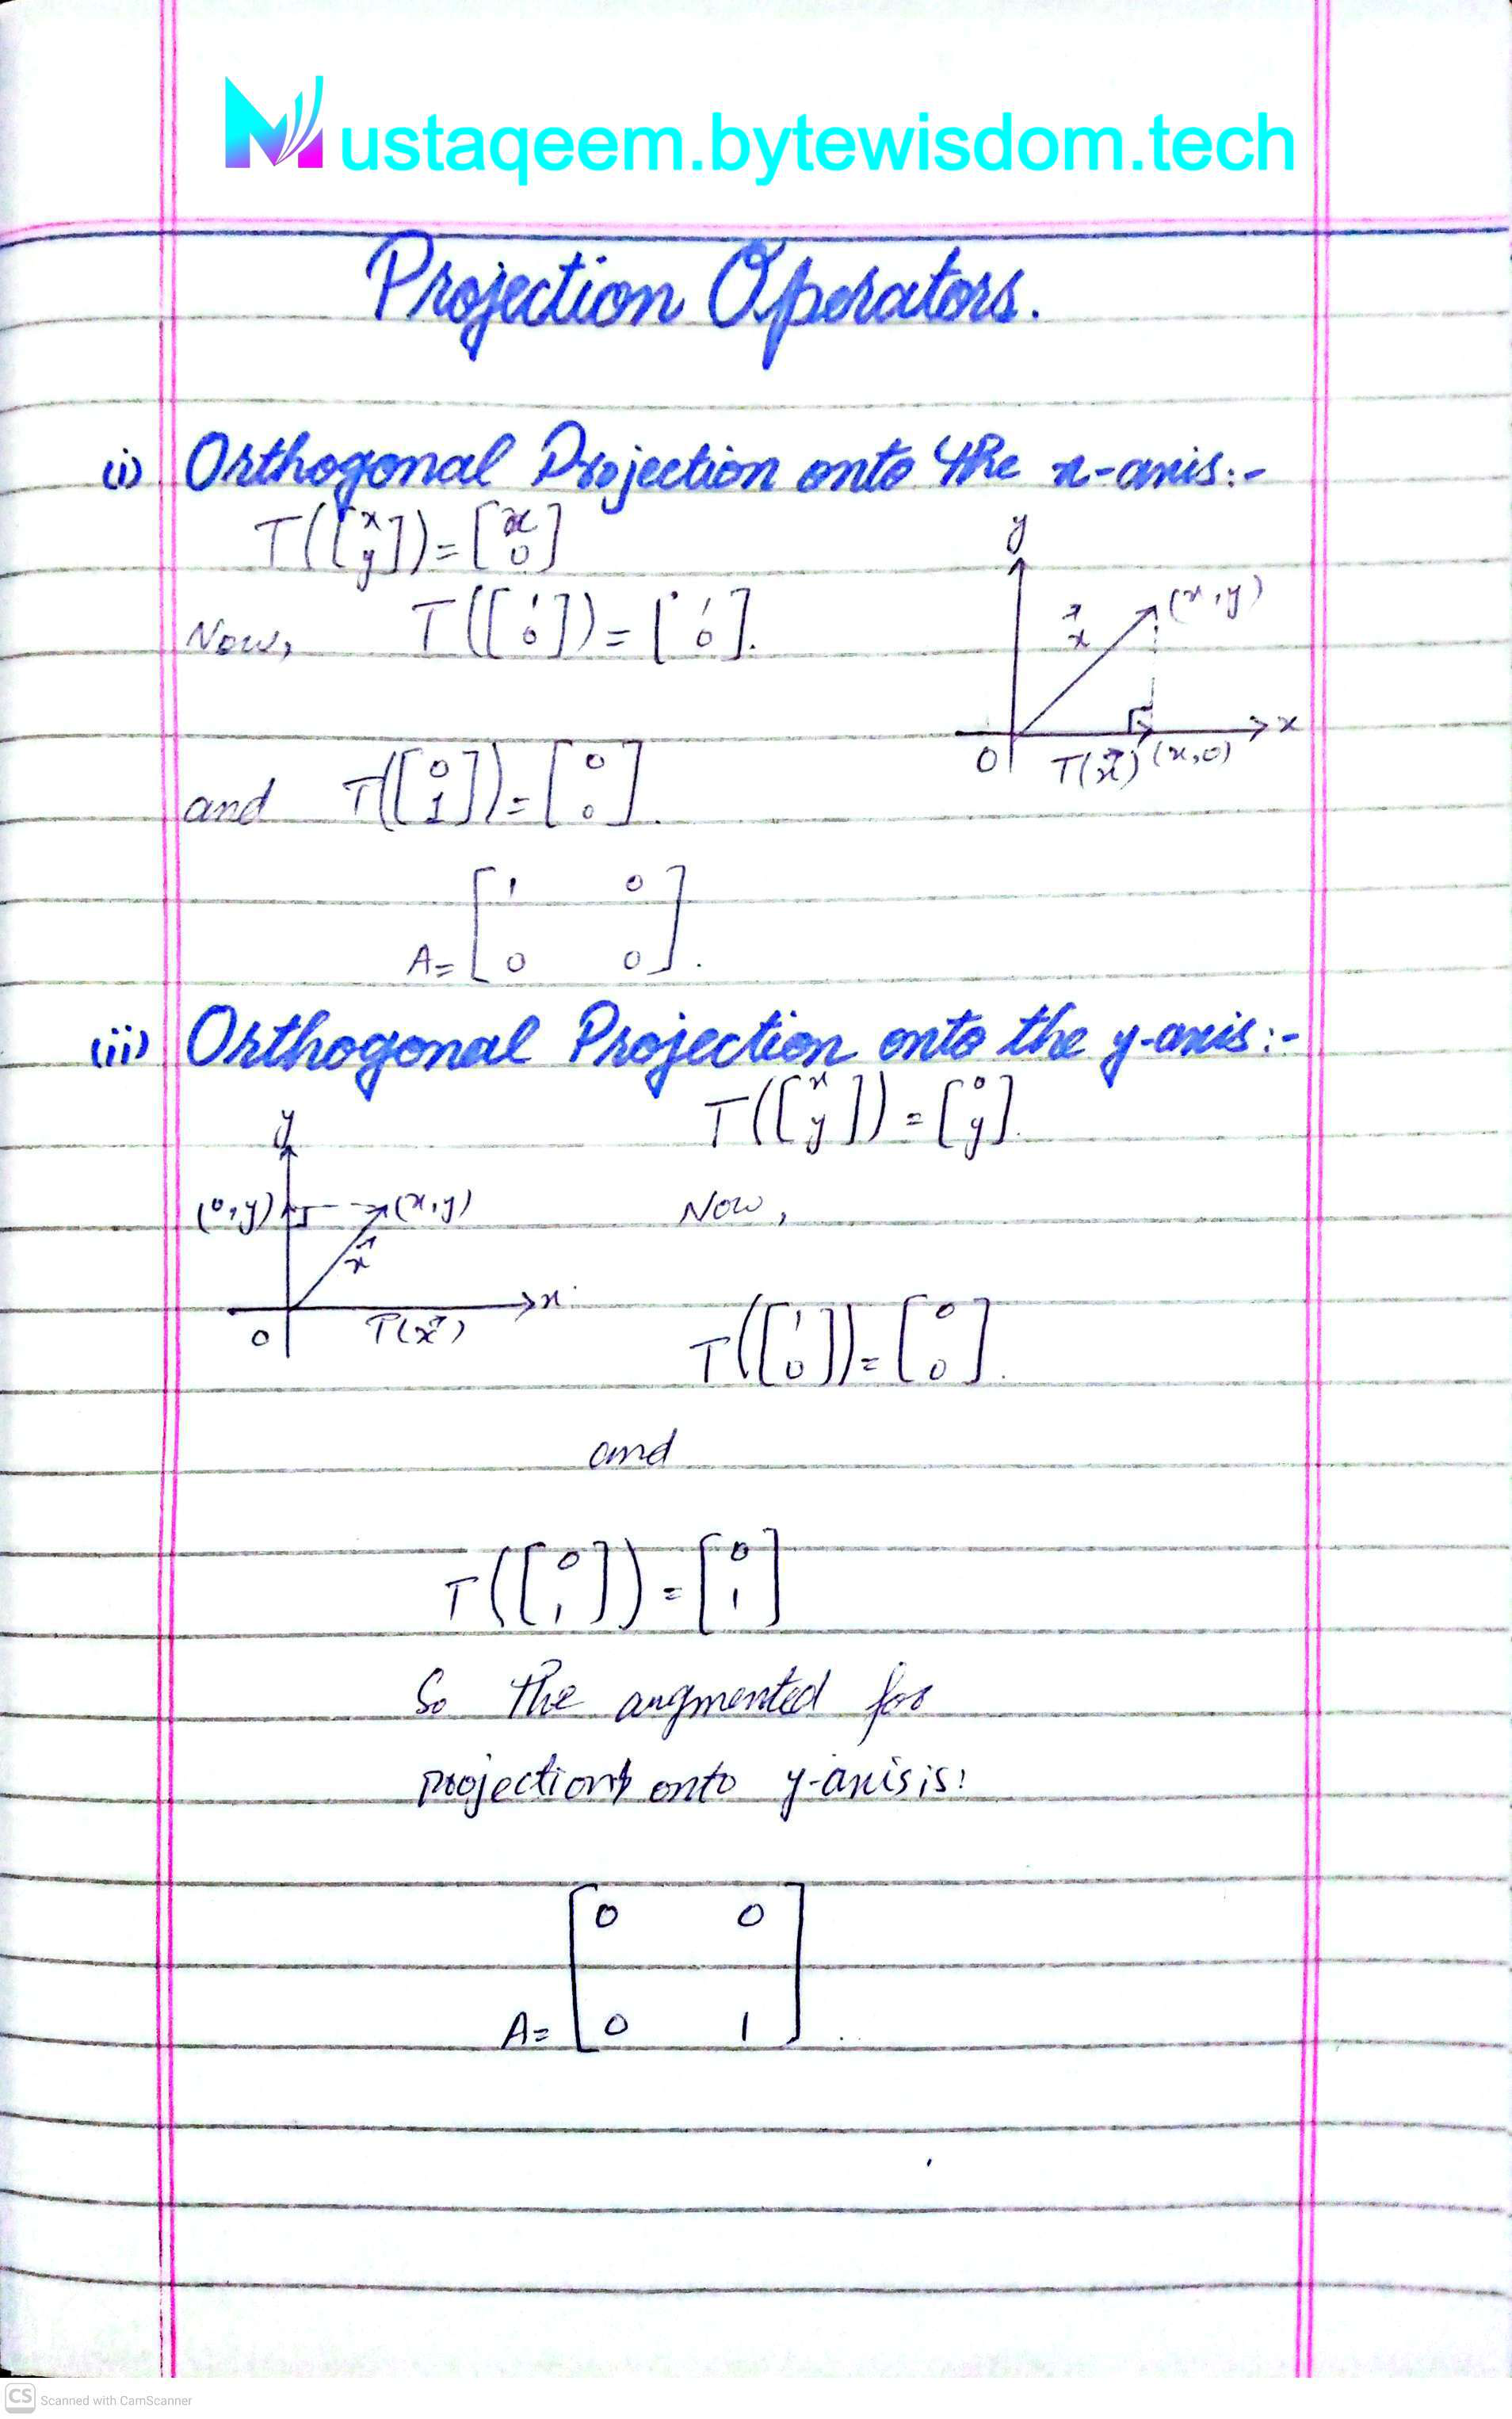 Mustaqeem.bytewisdom.tech
Projection Operators.
(i) Orthogonal Projection onto the x-axis:-
T([x y]) = [x 0]
Now, T([1 0]) = [1 0].
y
x⃗ (x,y)
x
O T(x⃗) (x,0)
and T([0 1]) = [0 0].
A= [1 0
0 0].
(ii) Orthogonal Projection onto the y-axis:-
T([x y]) = [0 y].
y
(0,y) (x,y)
x⃗
x
O T(x⃗)
Now,
T([1 0]) = [0 0].
and
T([0 1]) = [0 1]
So the augmented for
projection onto y-axis is:
A= [0 0
0 1].
CS Scanned with CamScanner